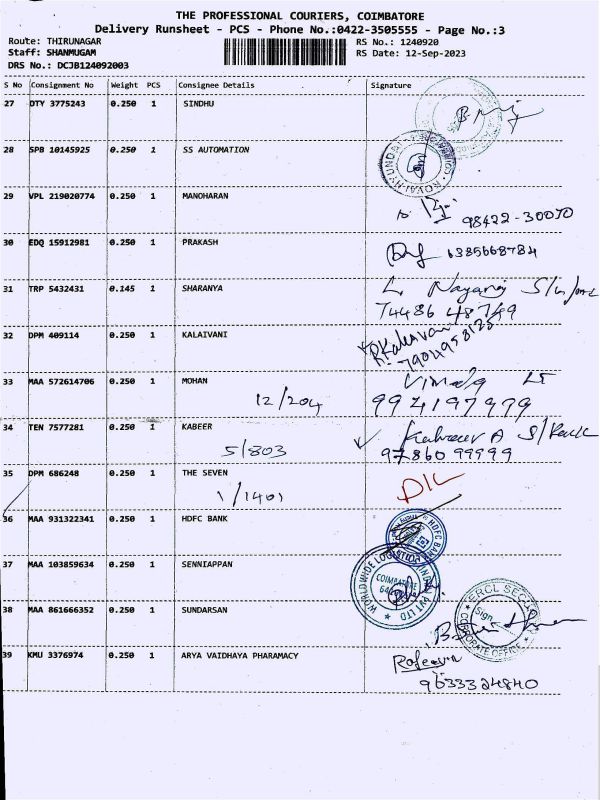 THE PROFESSIONAL COURIERS, COIMBATORE
Delivery Runsheet - PCS - Phone No.:0422-3505555 - Page No.:3
Route: THIRUNAGAR RS No.: 1240920
Staff: SHANMUGAM RS Date: 12-Sep-2023
DRS No.: DCJB124092003
S No Consignment No Weight PCS Consignee Details Signature
27 DTY 3775243 0.250 1 SINDHU
28 SPB 10145925 0.250 1 SS AUTOMATION
KOVAI HYUNDAI
29 VPL 219020774 0.250 1 MANOHARAN
98422-30070
30 EDQ 15912981 0.250 1 PRAKASH
6385668784
31 TRP 5432431 0.145 1 SHARANYA
74486 48749
32 DPM 409114 0.250 1 KALAIVANI
R.Kalaivani
7904958128
33 MAA 572614706 0.250 1 MOHAN
12/204 994197999
34 TEN 7577281 0.250 1 KABEER
5/803 97860 99999
35 DPM 686248 0.250 1 THE SEVEN
1/1401 DIL
36 MAA 931322341 0.250 1 HDFC BANK
HDFC BANK
37 MAA 103859634 0.250 1 SENNIAPPAN
WORLDWIDE LOGISTICS INDIA PVT LTD
COIMBATORE
38 MAA 861666352 0.250 1 SUNDARSAN
Sign
CORPORATE OFFICE
39 KMU 3376974 0.250 1 ARYA VAIDHAYA PHARAMACY
9633324840